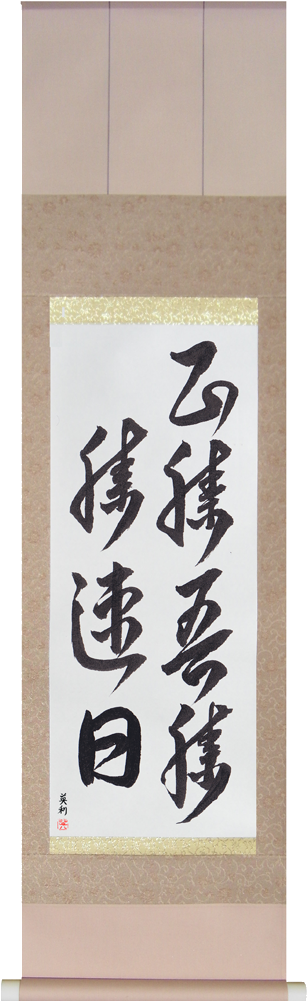 正勝吾勝
勝速日
英利